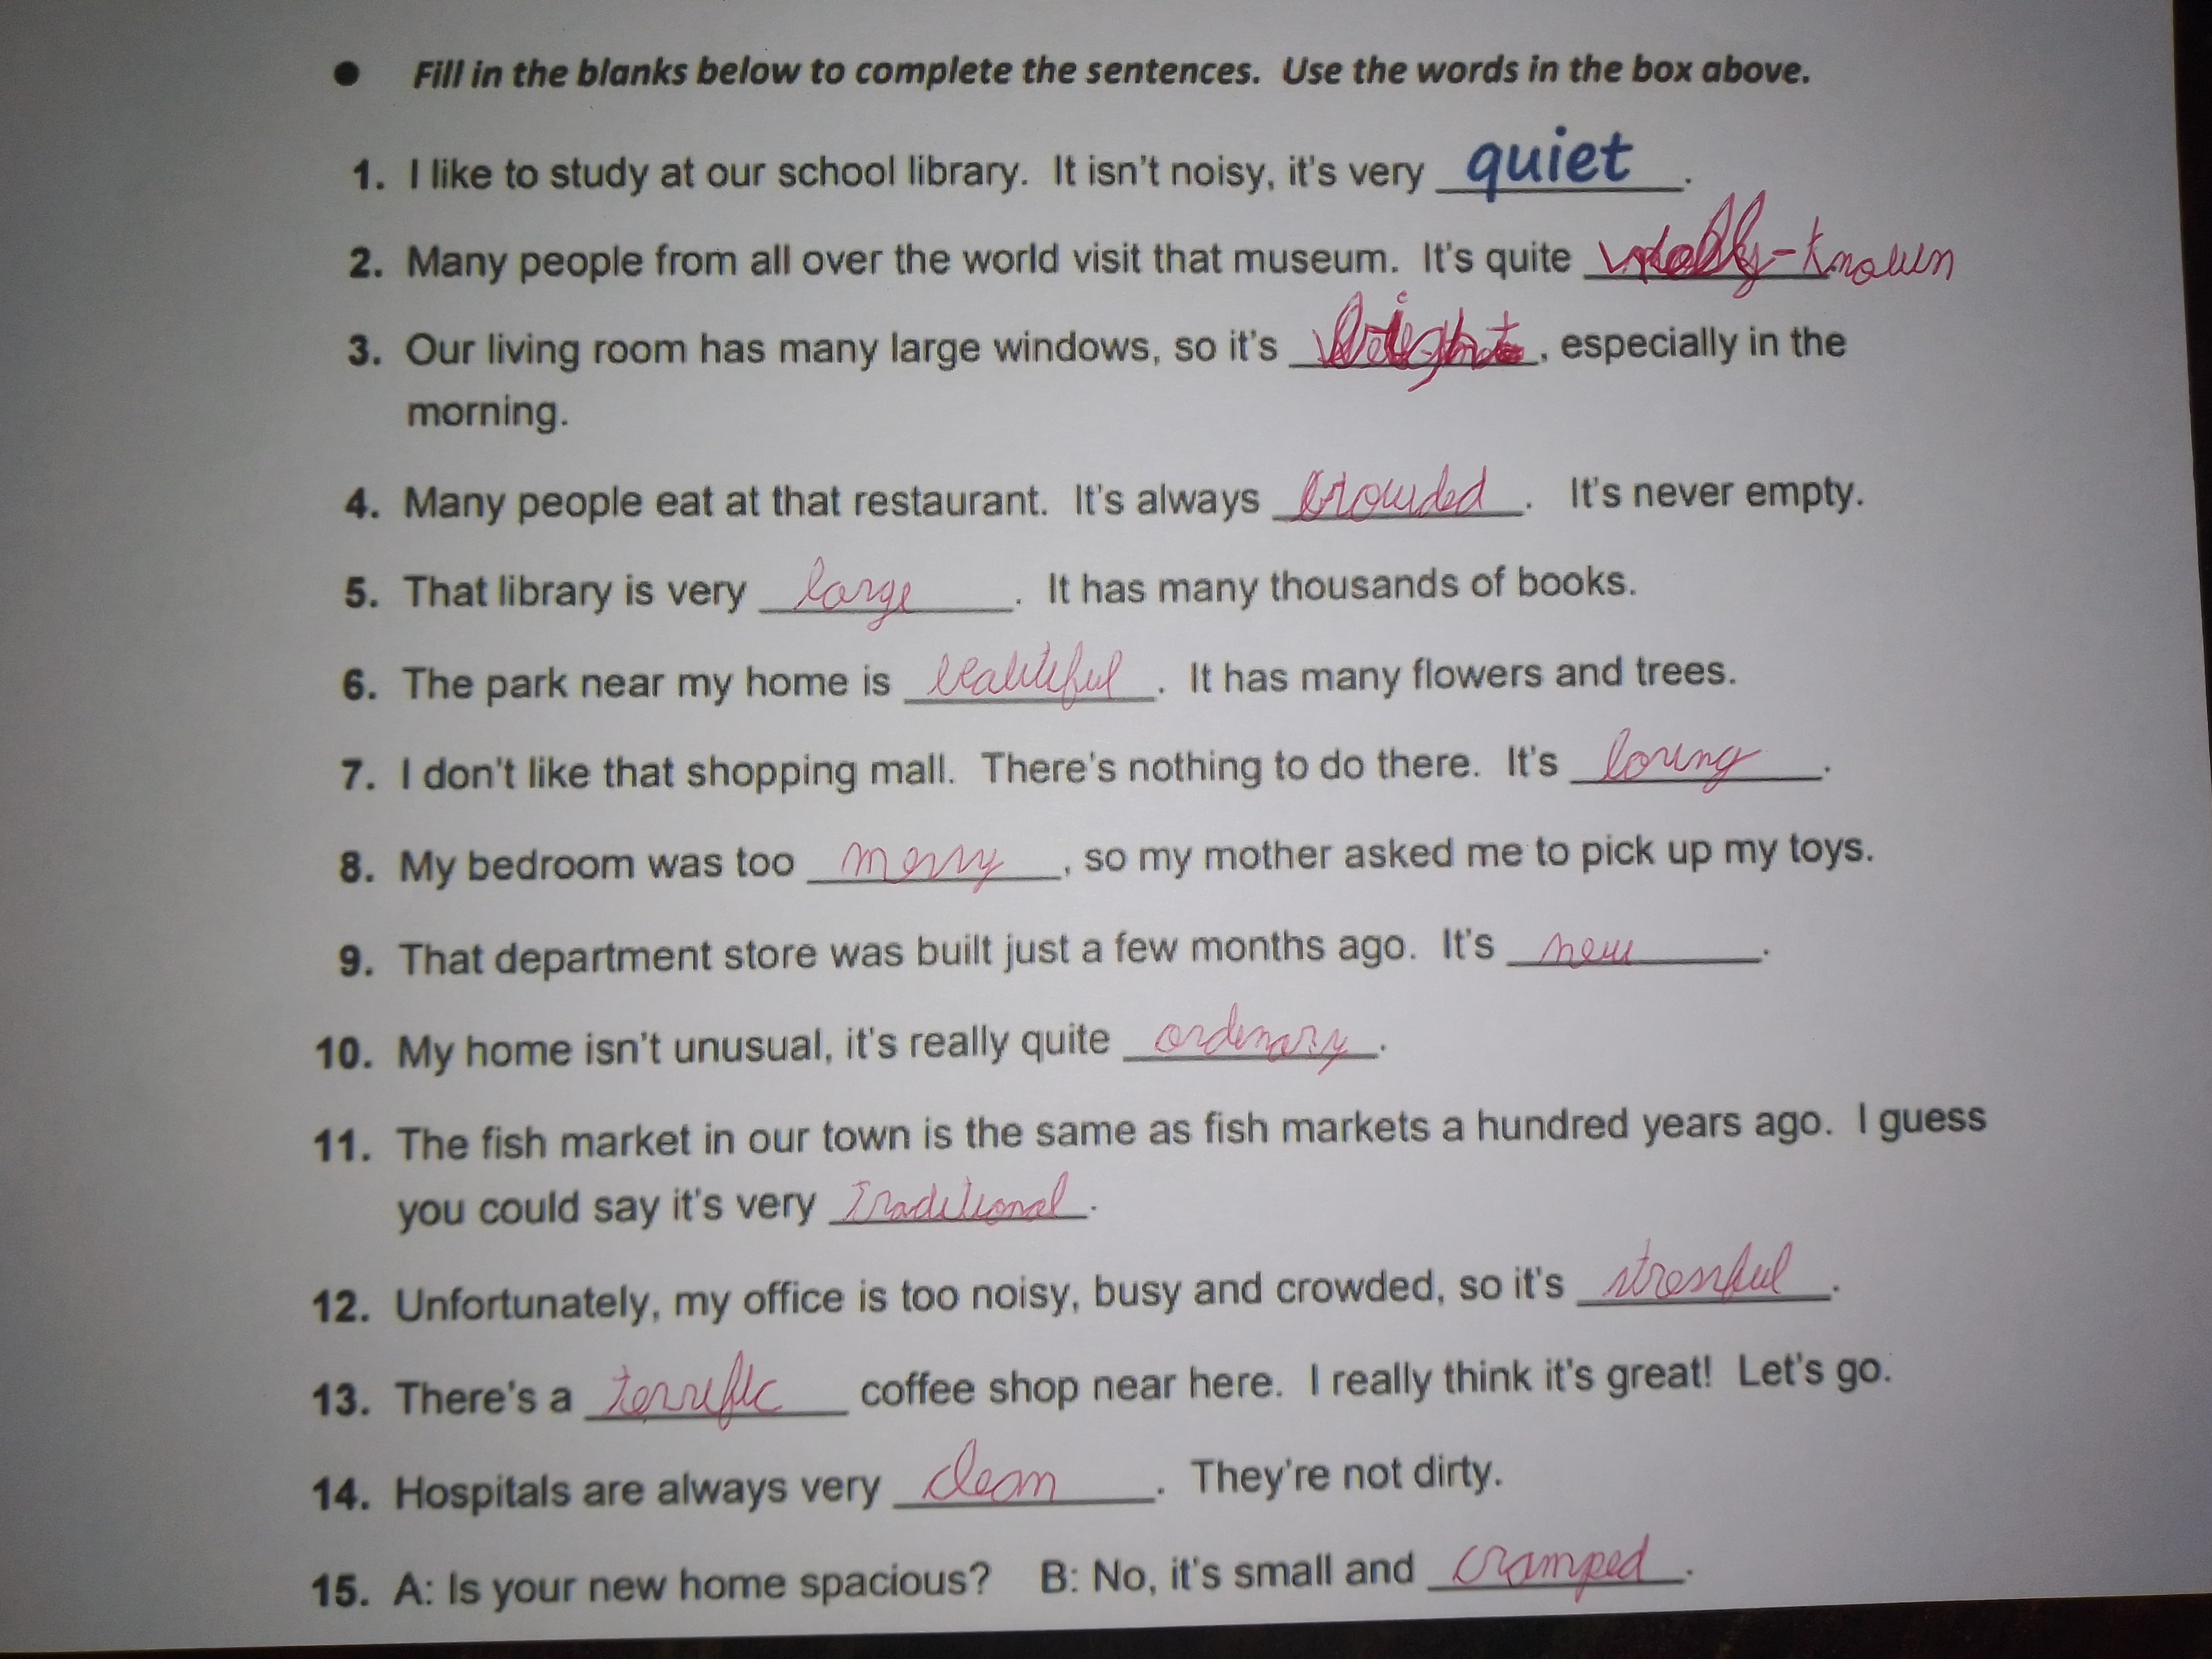 ● Fill in the blanks below to complete the sentences. Use the words in the box above.
1. I like to study at our school library. It isn't noisy, it's very quiet.
2. Many people from all over the world visit that museum. It's quite -known
3. Our living room has many large windows, so it's bright, especially in the
morning.
4. Many people eat at that restaurant. It's always crowded. It's never empty.
5. That library is very large. It has many thousands of books.
6. The park near my home is beautiful. It has many flowers and trees.
7. I don't like that shopping mall. There's nothing to do there. It's boring.
8. My bedroom was too messy, so my mother asked me to pick up my toys.
9. That department store was built just a few months ago. It's new.
10. My home isn't unusual, it's really quite ordinary.
11. The fish market in our town is the same as fish markets a hundred years ago. I guess
you could say it's very Traditional.
12. Unfortunately, my office is too noisy, busy and crowded, so it's stressful.
13. There's a terrific coffee shop near here. I really think it's great! Let's go.
14. Hospitals are always very clean. They're not dirty.
15. A: Is your new home spacious? B: No, it's small and cramped.